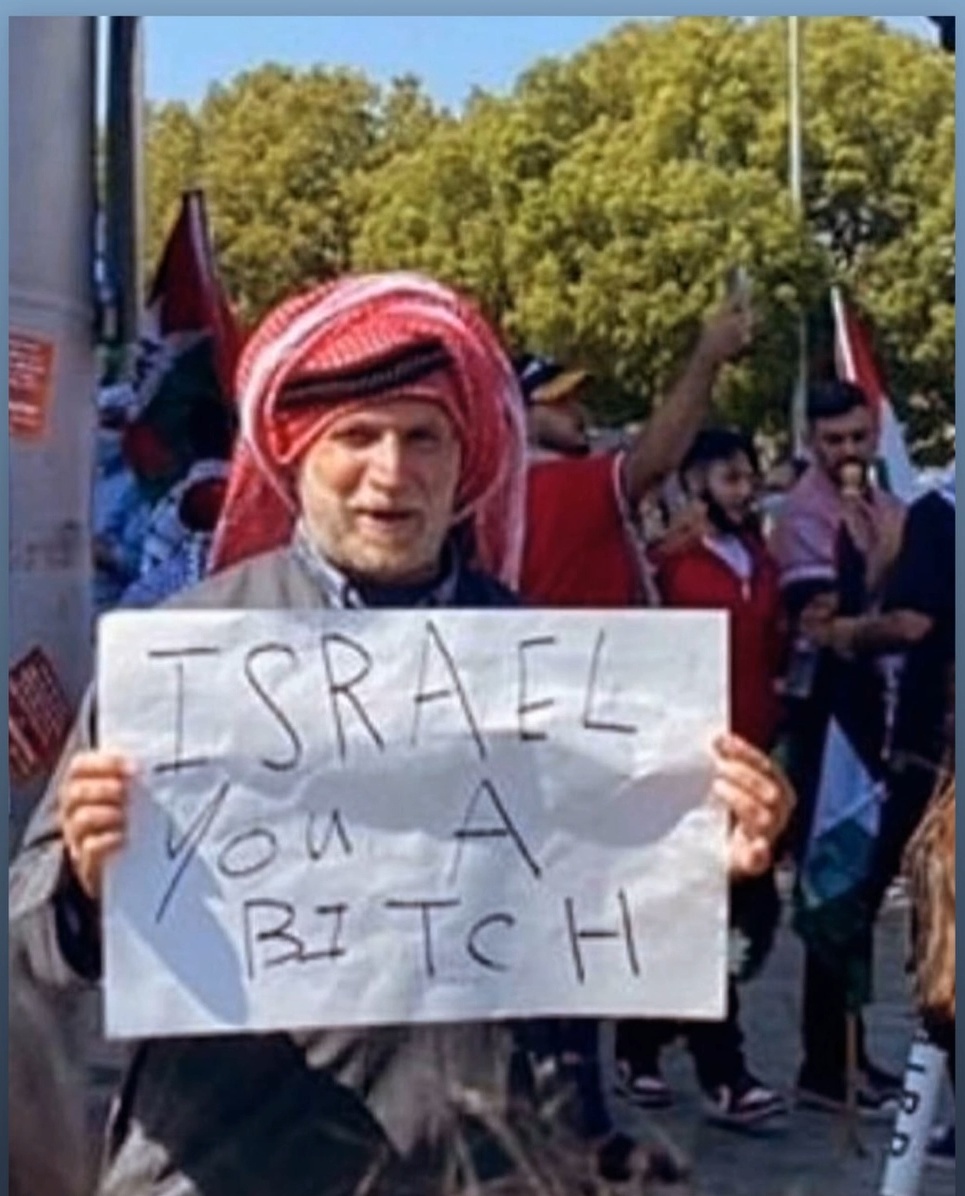 ISRAEL
You A
BITCH